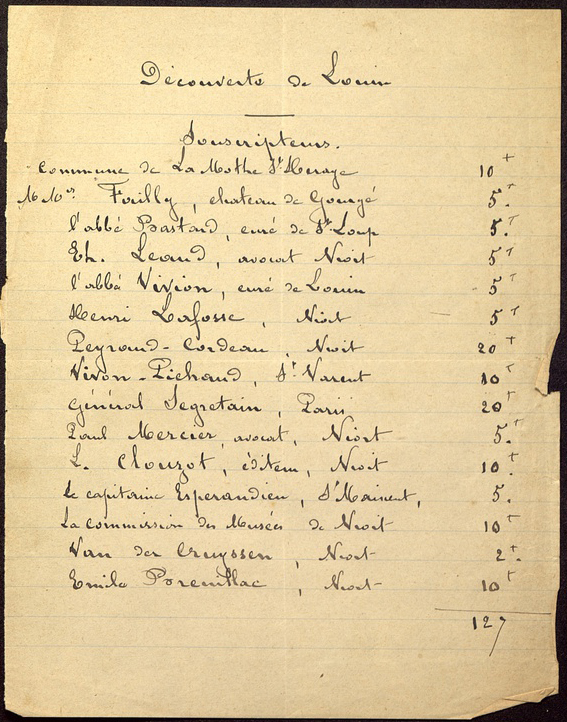 Découverte de Louin
Souscripteurs.
Commune de La Mothe St Heraye 10 f
MM rs Fouilly, chateau de Gourgé 5. f
l'abbé Bastard, curé de St Loup 5. f
Th. Leaud, avocat Niort 5 f
l'abbé Vivion, curé de Louin 5 f
Henri Lafosse, Niort 5 f
Peyraud-Cordeau, Niort 20 f
Vivon-Pichaud, St Varent 10 f
Général Segretain, Paris 20 f
Paul Mercier, avocat, Niort 5. f
L. Clouzot, éditeur, Niort 10. f
Le capitaine Esperandieu, St Maixent, 5.
La commission des Musées de Niort 10 f
Van der Cruyssen, Niort 2. f
Emile, Niort 10 f
127